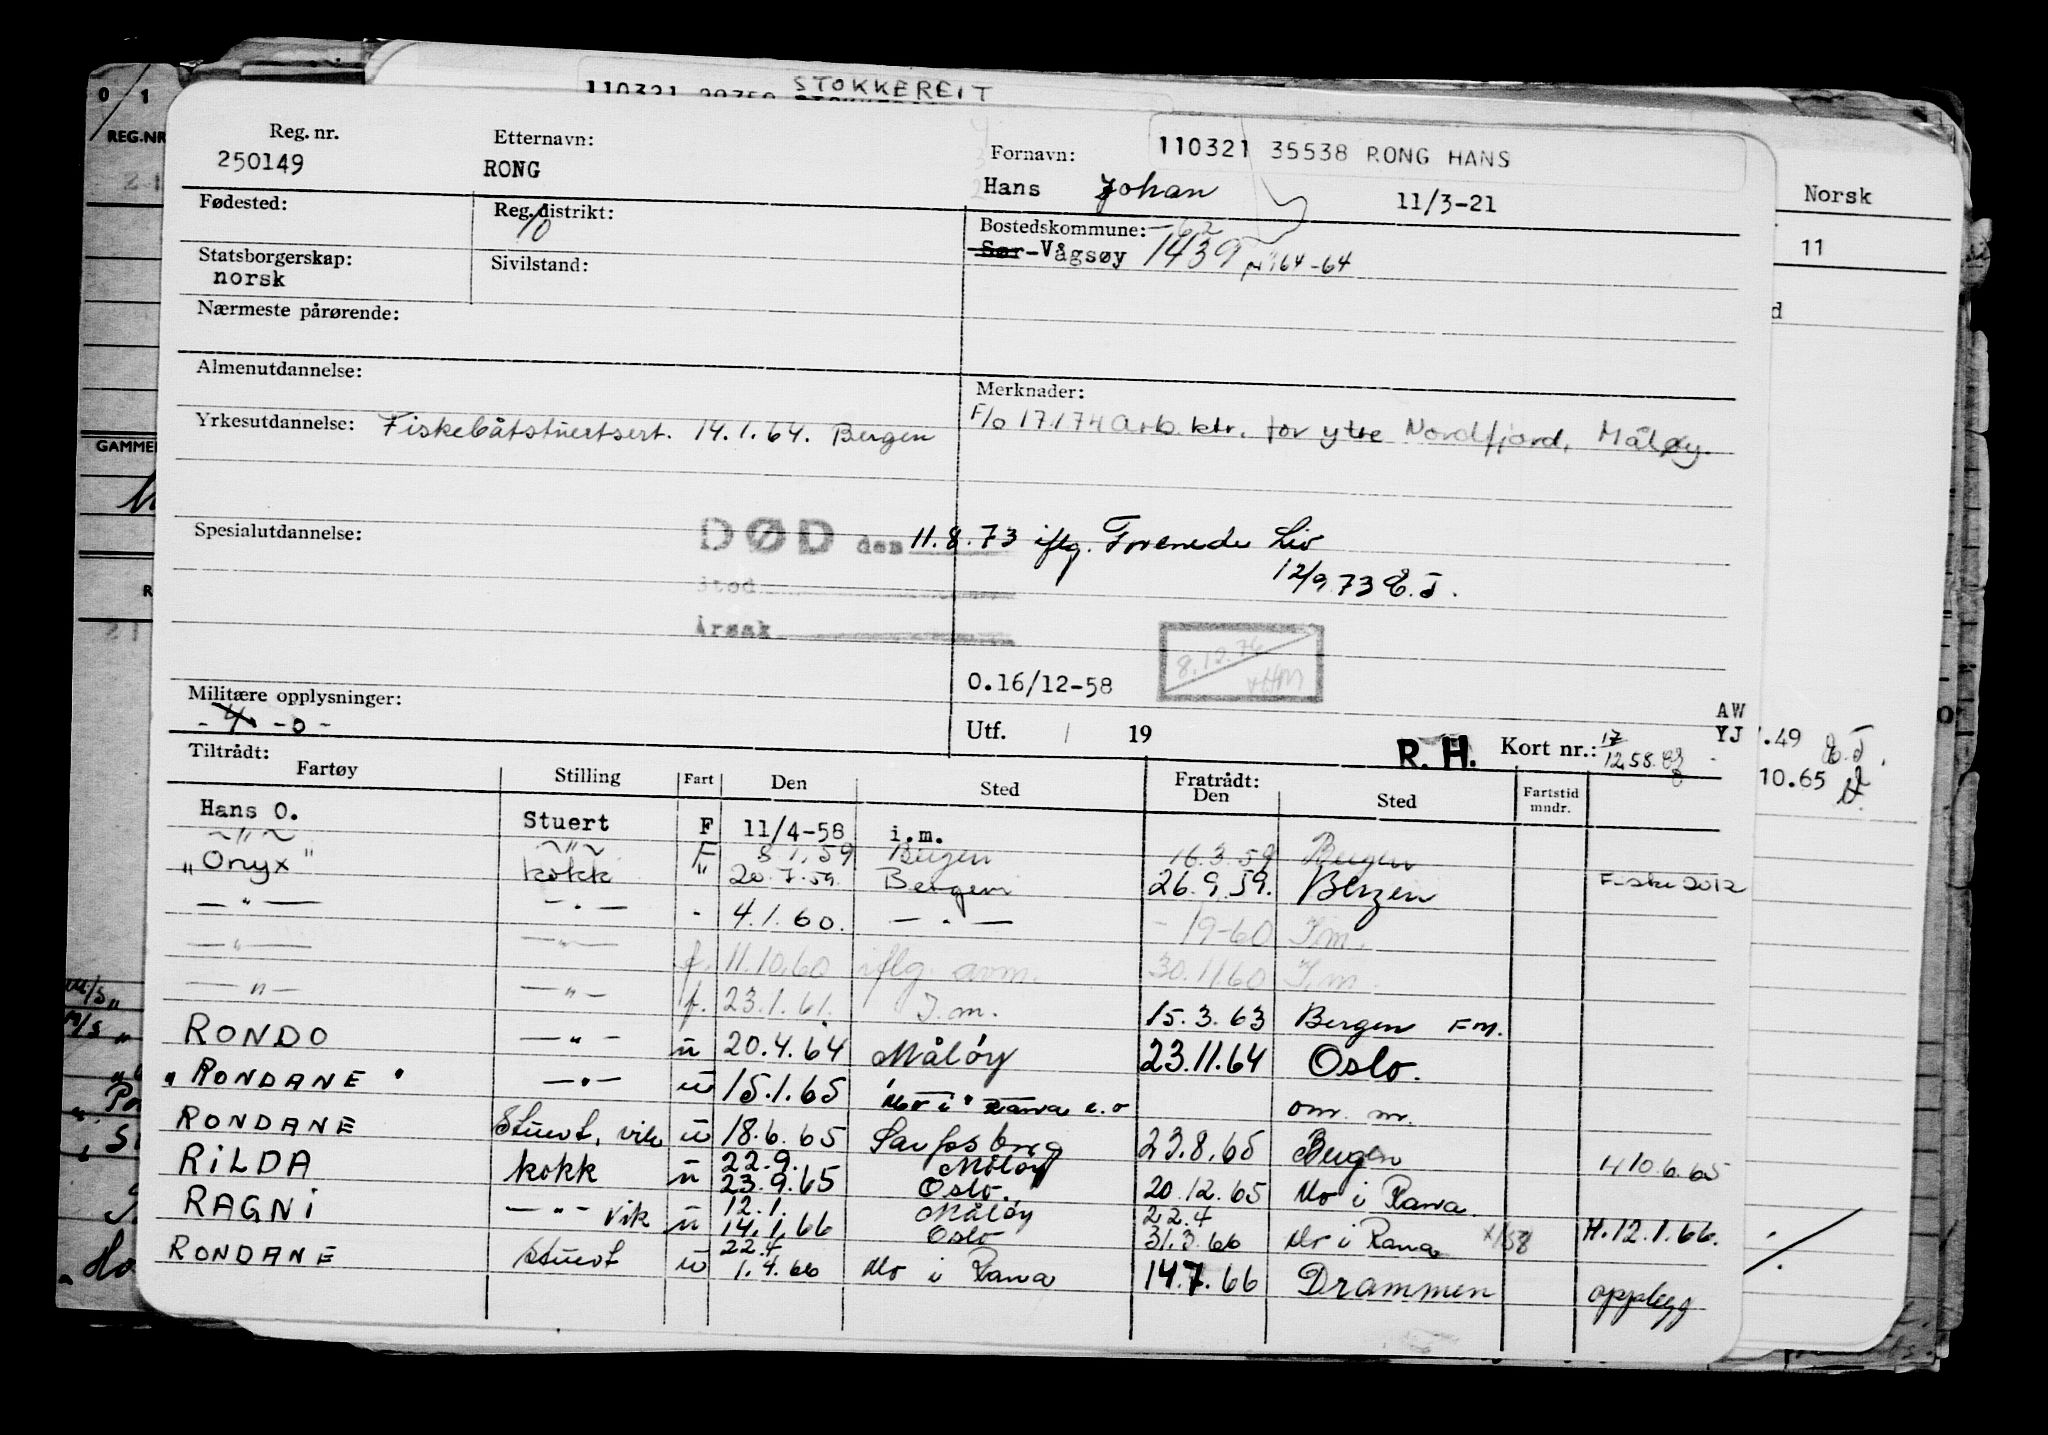 STOKKEREIT
110321
0 1
REG.NR
Reg. nr.
Etternavn:
Fornavn:
110321 35538 RONG HANS
250149
RONG
Hans Johan
11/3-21
Norsk
Fødested:
Reg. distrikt:
10
Bostedskommune: -62
Sør-Vågsøy 1439
64-64
11
Statsborgerskap:
norsk
Sivilstand:
Nærmeste pårørende:
d
Almenutdannelse:
Merknader:
Yrkesutdannelse: Fiskebåtstuertsert. 14.1.64. Bergen
F/o 17174 Arb. ktr. for ytre Nordfjord, Måløy.
GAMMEL
Spesialutdannelse:
DØD den 11.8.73 iflg. Forenede Liv
12/9.73 E.J.
Sted
Årsak
8.12.76
HM
O.16/12-58
Militære opplysninger:
- 4. -0-
Utf. / 19
R. H.
Kort nr.: 17/12.58.
AW
YJ
.49
10.65
Tiltrådt:
Fratrådt:
Fartøy Stilling Fart Den Sted Den Sted Fartstid mndr.
Hans O. Stuert F 11/4-58 i.m.
~"~ ~"~ F 8.1.59 Bergen 16.3.59 Bergen
"Onyx" kokk " 20.7.59. Bergen 26.9.59. Bergen
— " — - . — - 4.1.60. — . — - 19-60 I.m.
— " — — " — f. 11.10.60 iflg. avm. 30.11.60 I.m.
— " — — " — f. 23.1.61. I.m. 15.3.63 Bergen F.M.
RONDO — " — u 20.4.64 Måløy 23.11.64 Oslo.
"RONDANE" — " — u 15.1.65 Mo i Rana e.o om. m.
RONDANE Stuert, vik u 18.6.65 Sarpsborg 23.8.65 Bergen H 10.6.65
RILDA kokk u 22.9. 23.9.65 Måløy Oslo. 20.12.65 Mo i Rana
RAGNI — " — vik u 12.1. 14.1.66 Måløy Oslo 22.4 31.3.66 Mo i Rana H.12.1.66.
RONDANE Stuert u 22.4. 1.4.66 Mo i Rana 14.7.66 Drammen opplegg